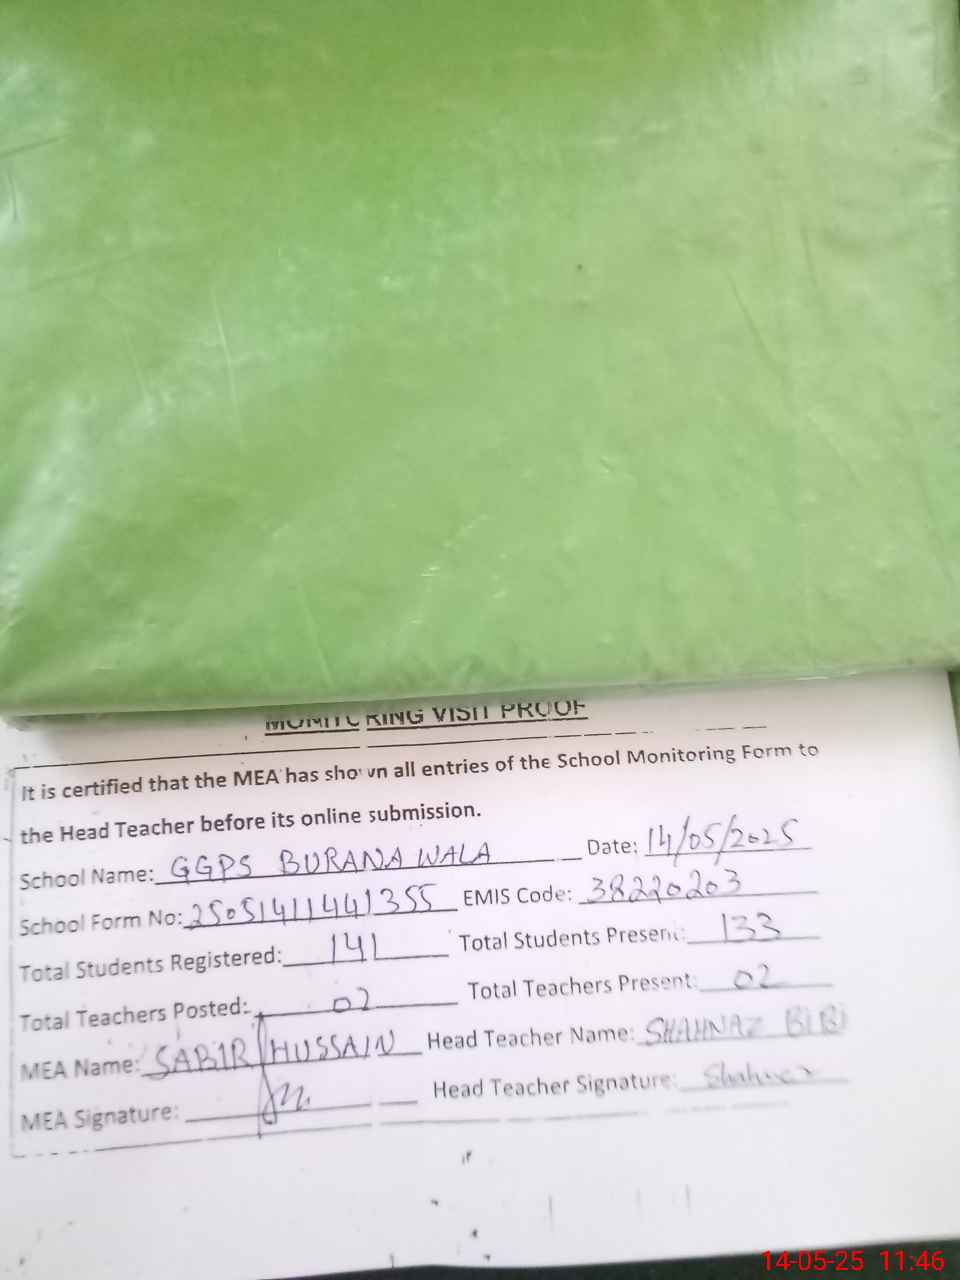 MONITORING VISIT PROOF
It is certified that the MEA has shown all entries of the School Monitoring Form to
the Head Teacher before its online submission.
School Name: GGPS BURANA WALA Date: 14/05/2025
School Form No: 25051411441355 EMIS Code: 38220203
Total Students Registered: 141 Total Students Present: 133
Total Teachers Posted: 02 Total Teachers Present: 02
MEA Name: SABIR HUSSAIN Head Teacher Name: SHAHNAZ BIBI
MEA Signature: Head Teacher Signature: Shahnaz
14-05-25 11:46